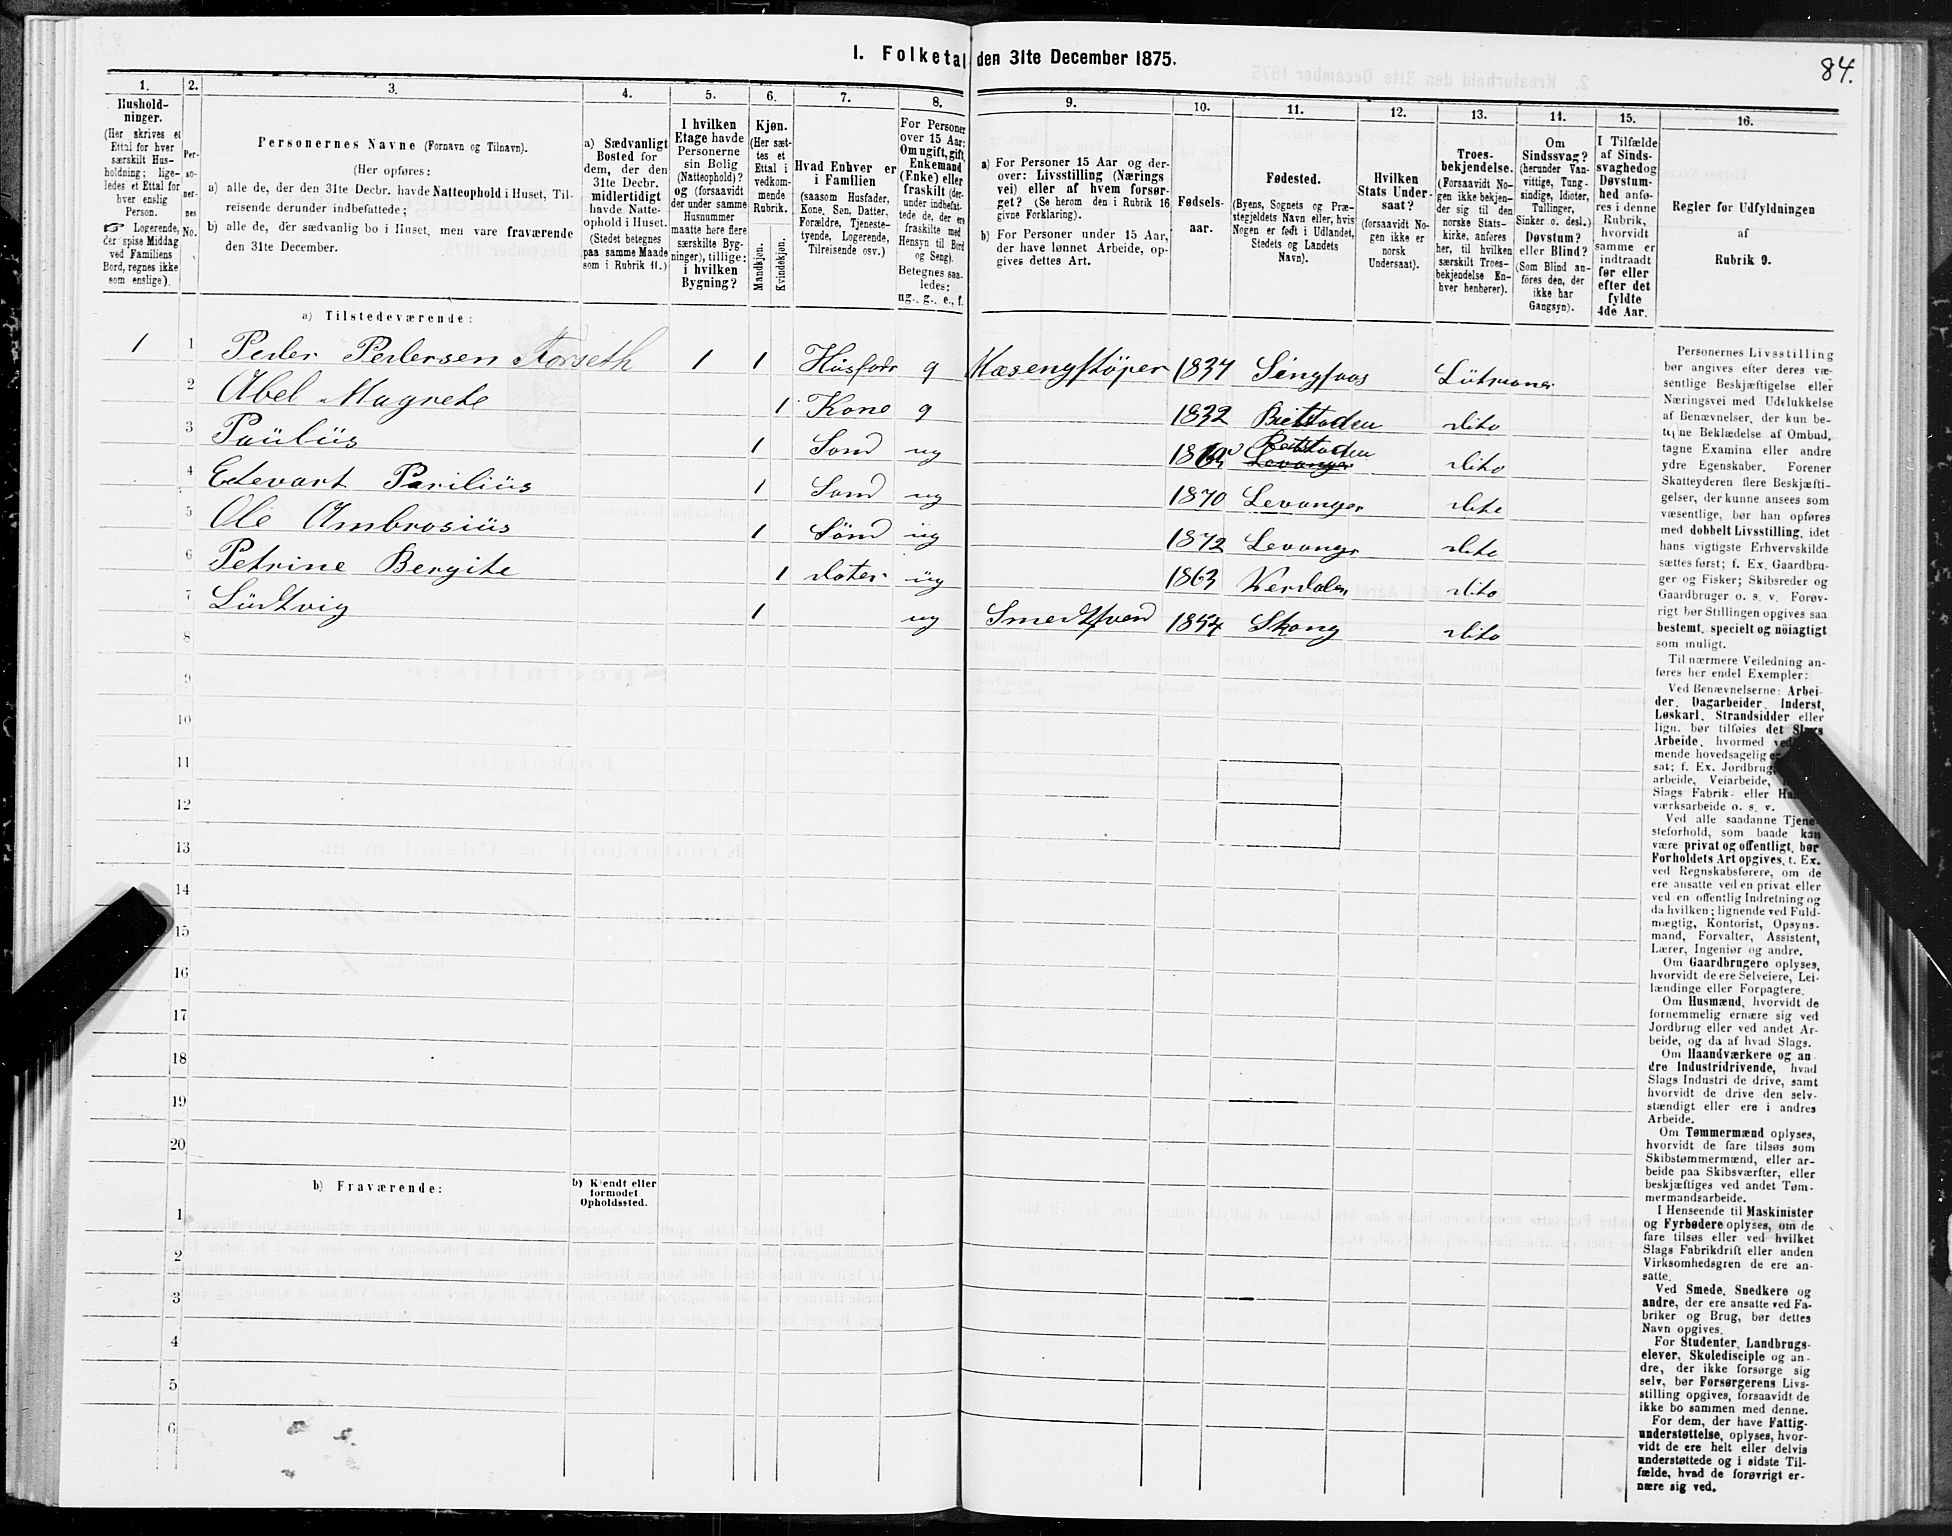 I. Folketal den 31te December 1875.
84.
1.
Husholdninger.
(Her skrives et
Ettal for hver
særskilt Husholdning; ligeledes et Ettal for
hver enslig
Person.
☞ Logerende,
der spise Middag
ved Familiens
Bord, regnes ikke
som enslige).
2.
Personernes No.
3.
Personernes Navne (Fornavn og Tilnavn).
(Her opføres:
a) alle de, der den 31te Decbr. havde Natteophold i Huset, Tilreisende derunder indbefattede;
b) alle de, der sædvanlig bo i Huset, men vare fraværende
den 31te December.
4.
a) Sædvanligt
Bosted for
dem, der den
31te Decbr.
midlertidigt
havde Natteophold i Huset.
(Stedet betegnes
paa samme Maade
som i Rubrik 11.)
5.
I hvilken
Etage havde
Personerne
sin Bolig
(Natteophold)?
og (forsaavidt
der under samme
Husnummer
maatte høre flere
særskilte Bygninger), tillige:
i hvilken
Bygning?
6.
Kjøn.
(Her sættes et
Ettal i
vedkommende
Rubrik.
Mandkjøn.
Kvindekjøn.
7.
Hvad Enhver er
i Familien
(saasom Husfader,
Kone, Søn, Datter,
Forældre, Tjenestetyende, Logerende,
Tilreisende osv.)
8.
For Personer
over 15 Aar:
Om ugift, gift,
Enkemand
(Enke) eller
fraskilt (derunder indbefattede de, der ere
fraskilte med
Hensyn til Bord
og Seng).
Betegnes saaledes:
ug., g., e., f.
9.
a) For Personer 15 Aar og derover: Livsstilling (Næringsvei) eller af hvem forsørget? (Se herom den i Rubrik 16
givne Forklaring).
b) For Personer under 15 Aar,
der have lønnet Arbeide, opgives dettes Art.
10.
Fødselsaar.
11.
Fødested.
(Byens, Sognets og Præstegjeldets Navn eller, hvis
Nogen er født i Udlandet,
Stedets og Landets
Navn).
12.
Hvilken
Stats Undersaat?
(forsaavidt Nogen ikke er
norsk
Undersaat).
13.
Troesbekjendelse.
(Forsaavidt Nogen ikke bekjender sig til den
norske Statskirke, anføres
her, til hvilken
særskilt Troesbekjendelse Enhver henhører).
14.
Om
Sindssvag?
(herunder Vanvittige, Tungsindige, Idioter,
Tullinger,
Sinker o. desl.)
Døvstum?
eller Blind?
(Som Blind anføres den, der
ikke har
Gangsyn).
15.
I Tilfælde
af Sindssvaghed og
Døvstumhed anføres i denne
Rubrik,
hvorvidt
samme er
indtraadt
før eller
efter det
fyldte
4de Aar.
16.
Regler for Udfyldningen
af
Rubrik 9.
a) Tilstedeværende:
1 1 Peder Pedersen Forseth 1 1 Husfadr g Mæsengstöper 1834 Singsaas Lütraner
2 Abel Magrete 1 Kone g 1832 Beitstaden dito
3 Paülüs 1 Sond ug Beitstaden Levanger dito
4 Edevart Parilius 1 Sond ug 1870 Levanger dito
5 Ole Ambrosiüs 1 Sönd üg 1872 Levanger dito
6 Petrine Bergite 1 dater üg 1863 Verdalen dito
7 Lüdtvig 1 ug Smedtsvend 1854 Skong dito
8
9
10
11
12
13
14
15
16
17
18
19
20
b) Fraværende:
b) Kjendt eller
formodet
Opholdssted.
1
2
3
4
5
6
Personernes Livsstilling
bør angives efter deres væsentlige Beskjæftigelse eller
Næringsvei med Udelukkelse
af Benævnelser, der kun betegne Beklædelse af Ombud,
tagne Examina eller andre
ydre Egenskaber. Forener
Skatteyderen flere Beskjæftigelser, der kunne ansees som
væsentlige, bør han opføres
med dobbelt Livsstilling, idet
hans vigtigste Erhvervskilde
sættes først; f. Ex. Gaardbruger og Fisker; Skibsreder og
Gaardbruger o. s. v. Forøvrigt bør Stillingen opgives saa
bestemt, specielt og nöiagtigt
som muligt.
Til nærmere Veiledning anføres her endel Exempler:
Ved Benævnelserne: Arbeider, Dagarbeider, Inderst,
Løskarl, Strandsidder eller
lign. bør tilføies det Slags
Arbeide, hvormed vedkommende hovedsagelig er
sat; f. Ex. Jordbrug,
arbeide, Veiarbeide,
Slags Fabrik- eller Haandværksarbeide o. s. v.
Ved alle saadanne Tjenesteforhold, som baade kan
være privat og offentligt, bør
Forholdets Art opgives, t. Ex.
ved Regnskabsførere, om de
ere ansatte ved en privat eller
ved en offentlig Indretning og
da hvilken; lignende ved Fuldmægtig, Kontorist, Opsynsmand, Forvalter, Assistent,
Lærer, Ingeniør og andre.
Om Gaardbrugere oplyses,
hvorvidt de ere Selveiere, Leilændinge eller Forpagtere.
Om Husmænd, hvorvidt de
fornemmelig ernære sig ved
Jordbrug eller ved andet Arbeide, og da af hvad Slags.
Om Haandværkere og andre Industridrivende, hvad
Slags Industri de drive, samt
hvorvidt de drive den selvstændigt eller ere i andres
Arbeide.
Om Tømmermænd oplyses,
hvorvidt de fare tilsøs som
Skibstømmermænd, eller arbeide paa Skibsværfter, eller
beskjæftiges ved andet Tømmermandsarbeide.
I Henseende til Maskinister
og Fyrbødere oplyses, om de
fare tilsøs eller ved hvilket
Slags Fabrikdrift eller anden
Virksomhedsgren de ere ansatte.
Ved Smede, Snedkere og
andre, der ere ansatte ved Fabriker og Brug, bør dettes
Navn opgives.
For Studenter, Landbrugselever, Skoledisciple og andre, der ikke forsørge sig
selv, bør Forsørgerens Livsstilling opgives, forsaavidt de
ikke bo sammen med denne.
For dem, der have Fattigunderstøttelse, oplyses, hvorvidt de ere helt eller delvis
understøttede og i sidste Tilfælde, hvad de forøvrigt ernære sig ved.